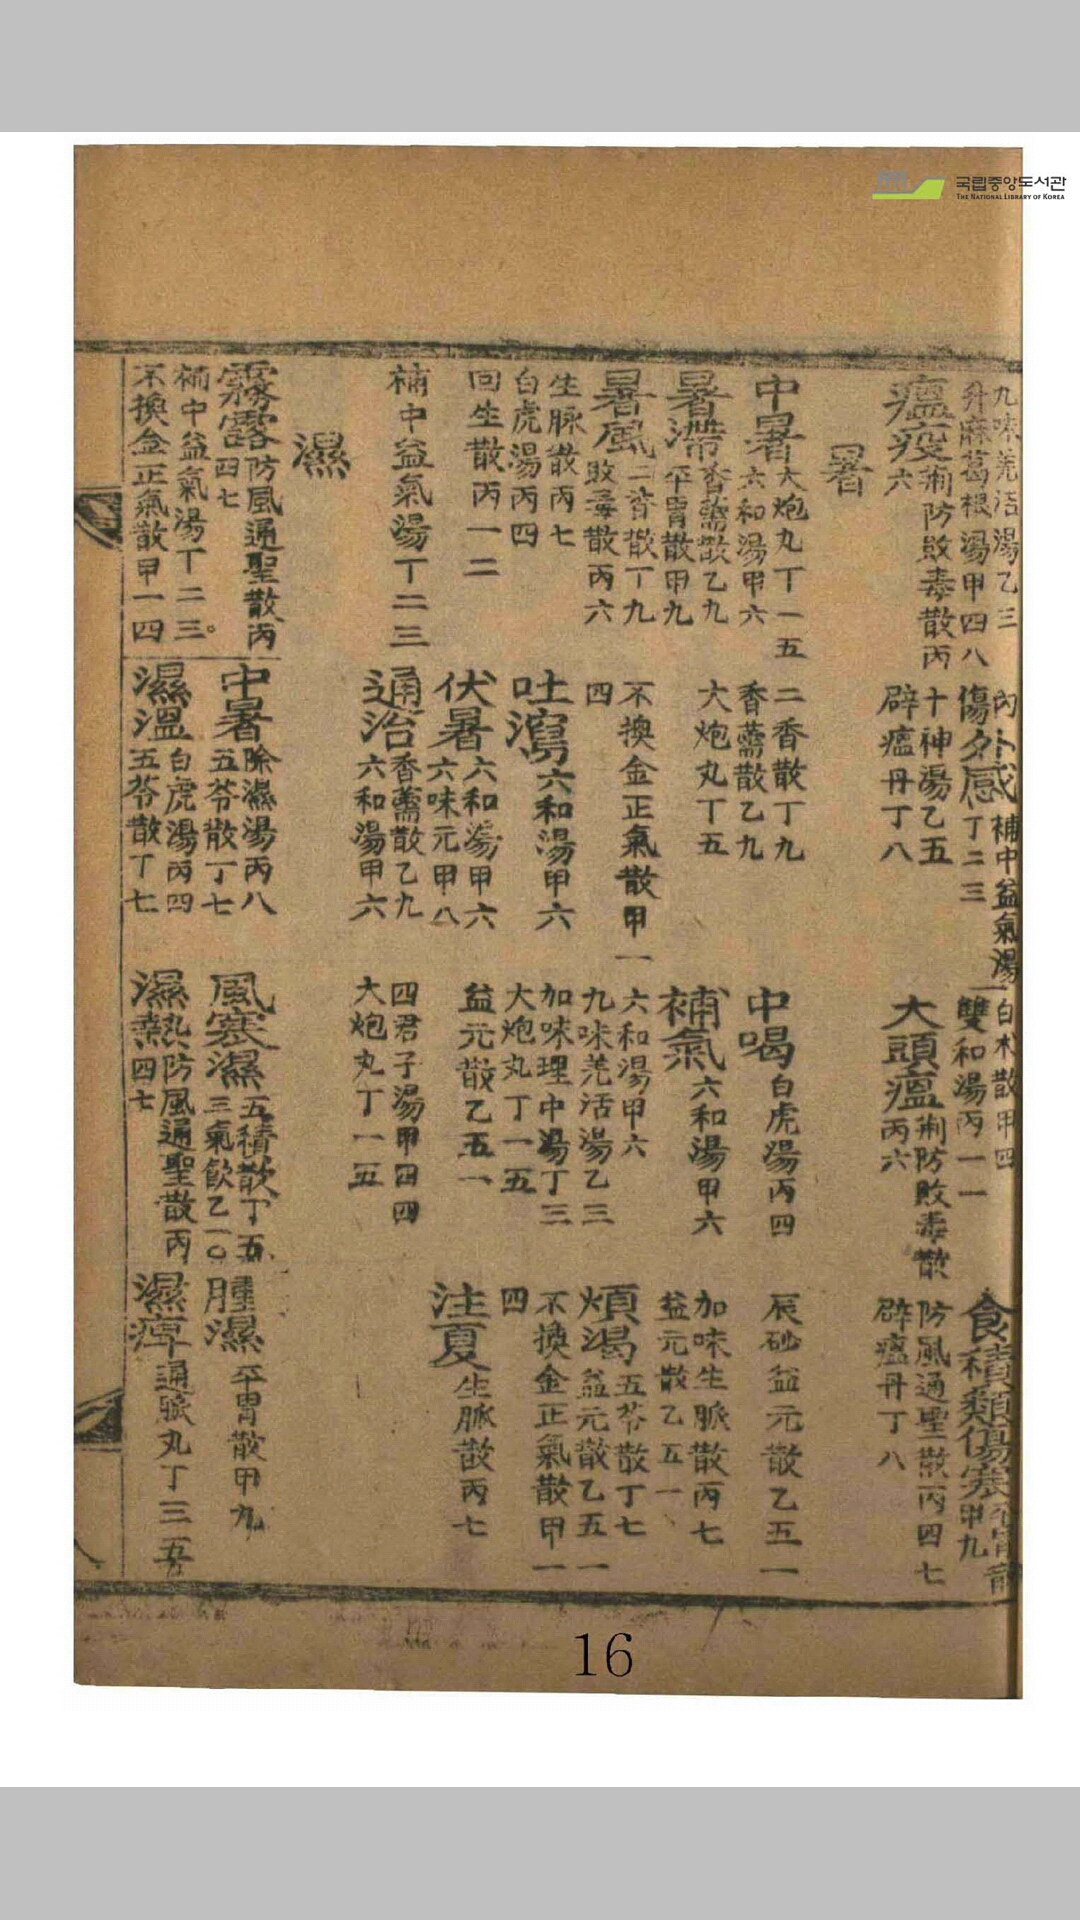 국립중앙도서관
THE NATIONAL LIBRARY OF KOREA
九味羌活湯乙三
升麻葛根湯甲四八
內傷外感
補中益氣湯
丁二三
白朮散甲四
雙和湯丙一一
食積類傷寒
甲九
瘟疫
荊防敗毒散丙
六
十神湯乙五
辟瘟丹丁八
大頭瘟
荊防敗毒散
丙六
防風通聖散丙四七
辟瘟丹丁八
暑
中暑
大炮丸丁一五
六和湯甲六
二香散丁九
香薷散乙九
中暍
白虎湯丙四
辰砂益元散乙五一
暑滯
香薷散乙九
平胃散甲九
大炮丸丁五
補氣
六和湯甲六
加味生脈散丙七
益元散乙五一
暑風
二香散丁九
敗毒散丙六
不換金正氣散甲一
四
六和湯甲六
九味羌活湯乙三
加味理中湯丁三
大炮丸丁一五
益元散乙五一
煩渴
五苓散丁七
益元散乙五一
不換金正氣散甲一
四
生脉散丙七
白虎湯丙四
回生散丙一二
吐瀉
六和湯甲六
伏暑
六和湯甲六
六味元甲八
注夏
生脈散丙七
補中益氣湯丁二三
通治
香薷散乙九
六和湯甲六
四君子湯甲四四
大炮丸丁一五
濕
霧露
防風通聖散丙
四七
補中益氣湯丁二三
不換金正氣散甲一四
中暑
除濕湯丙八
五苓散丁七
風寒濕
五積散丁五
三氣飲乙一〇
腫濕
平胃散甲九
濕溫
白虎湯丙四
五苓散丁七
濕熱
防風通聖散丙
四七
濕痺
通脈丸丁三五
16